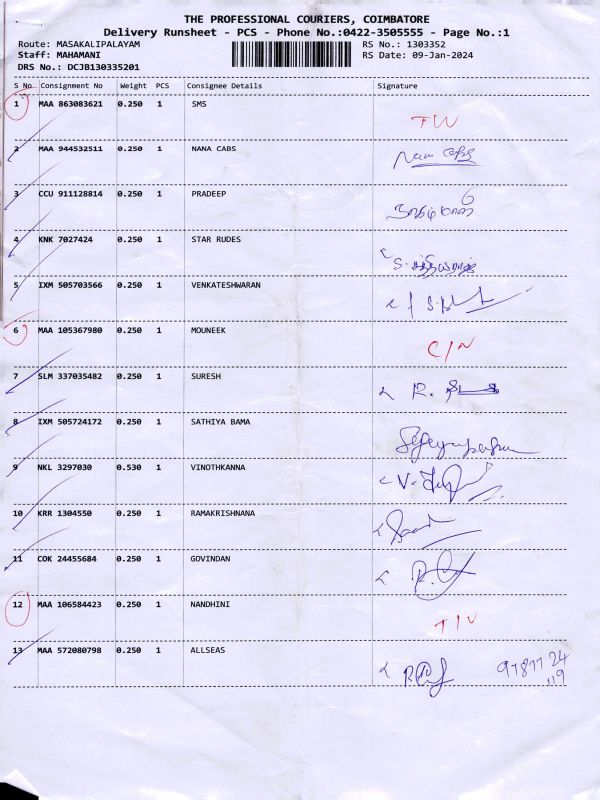 THE PROFESSIONAL COURIERS, COIMBATORE
Delivery Runsheet - PCS - Phone No.:0422-3505555 - Page No.:1
Route: MASAKALIPALAYAM RS No.: 1303352
Staff: MAHAMANI RS Date: 09-Jan-2024
DRS No.: DCJB130335201
S No Consignment No Weight PCS Consignee Details Signature
1 MAA 863083621 0.250 1 SMS
2 MAA 944532511 0.250 1 NANA CABS
3 CCU 911128814 0.250 1 PRADEEP
4 KNK 7027424 0.250 1 STAR RUDES
5 IXM 505703566 0.250 1 VENKATESHWARAN
6 MAA 105367980 0.250 1 MOUNEEK C/N
7 SLM 337035482 0.250 1 SURESH
8 IXM 505724172 0.250 1 SATHIYA BAMA
9 NKL 3297030 0.530 1 VINOTHKANNA
10 KRR 1304550 0.250 1 RAMAKRISHNANA
11 COK 24455684 0.250 1 GOVINDAN
12 MAA 106584423 0.250 1 NANDHINI
13 MAA 572080798 0.250 1 ALLSEAS